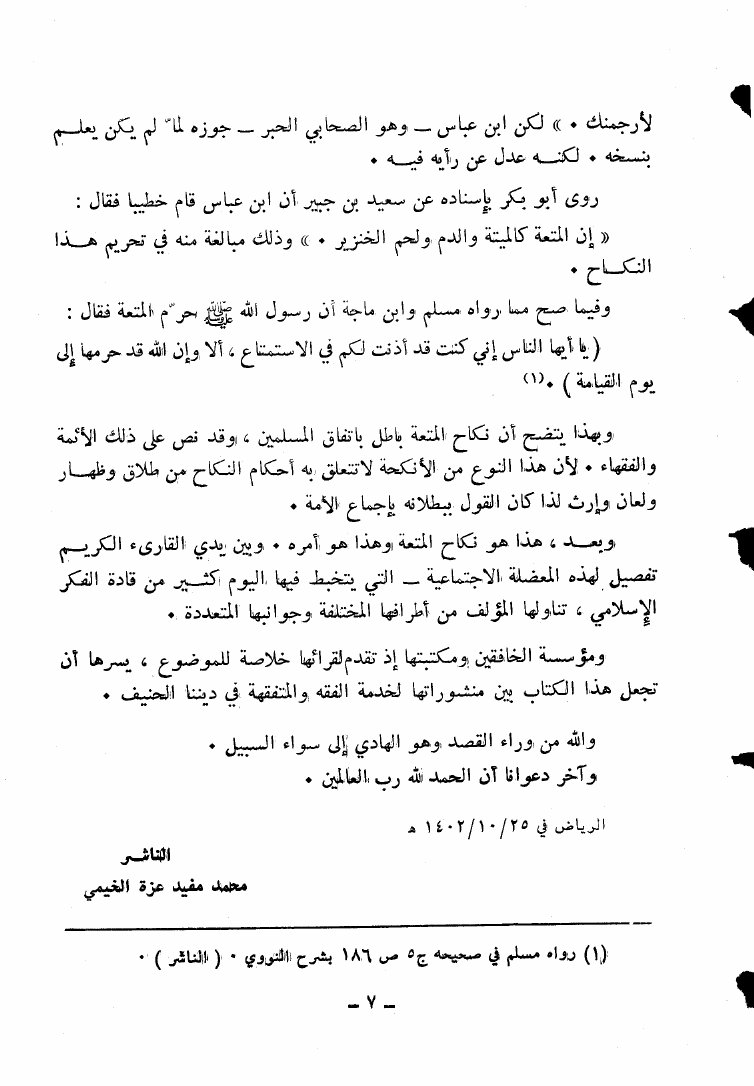 لأرجمنك • » لكن ابن عباس – وهو الصحابي الحبر – جوزه لمّا لم يكن يعلم
بنسخه • لكنه عدل عن رأيه فيه •
روى أبو بكر بإسناده عن سعيد بن جبير أن ابن عباس قام خطيبا فقال :
« إن المتعة كالميتة والدم ولحم الخنزير • » وذلك مبالغة منه في تحريم هذا
النكاح •
وفيما صح مما رواه مسلم وابن ماجة أن رسول الله ﷺ حرّم المتعة فقال :
( يا أيها الناس إني كنت قد أذنت لكم في الاستمتاع ، ألا وإن الله قد حرمها إلى
يوم القيامة ) •(١)
وبهذا يتضح أن نكاح المتعة باطل باتفاق المسلمين ، وقد نص على ذلك الأئمة
والفقهاء • لأن هذا النوع من الأنكحة لاتتعلق به أحكام النكاح من طلاق وظهار
ولعان وإرث لذا كان القول ببطلانه بإجماع الأمة •
وبعد ، هذا هو نكاح المتعة وهذا هو أمره • وبين يدي القارىء الكريم
تفصيل لهذه المعضلة الاجتماعية – التي يتخبط فيها اليوم كثير من قادة الفكر
الإسلامي ، تناولها المؤلف من أطرافها المختلفة وجوانبها المتعددة •
ومؤسسة الخافقين ومكتبتها إذ تقدم لقرائها خلاصة للموضوع ، يسرها أن
تجعل هذا الكتاب بين منشوراتها لخدمة الفقه والمتفقهة في ديننا الحنيف •
والله من وراء القصد وهو الهادي إلى سواء السبيل •
وآخر دعوانا أن الحمد لله رب العالمين •
الرياض في ١٤٠٢/١٠/٢٥ هـ
الناشر
محمد مفيد عزة الخيمي
(١) رواه مسلم في صحيحه ج٥ ص ١٨٦ بشرح النووي • ( الناشر ) •
– ٧ –